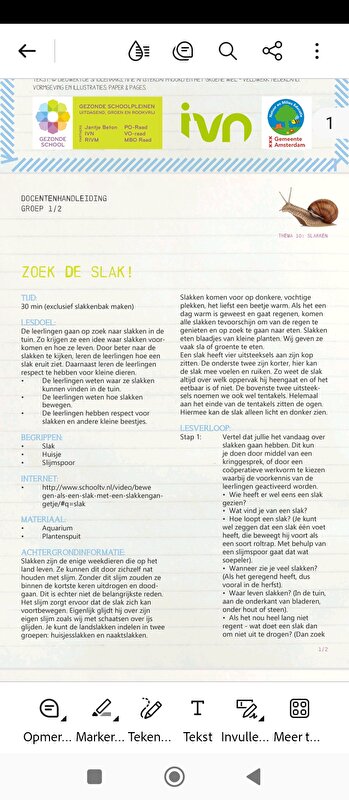 VORMGEVING EN ILLUSTRATIES: PAPER & PAGES.
GEZONDE SCHOOL
GEZONDE SCHOOLPLEINEN
UITDAGEND, GROEN EN ROOKVRIJ
Jantje Beton
IVN
RIVM
PO-Raad
VO-raad
MBO Raad
ivn
Gemeente
Amsterdam
1
DOCENTENHANDLEIDING
GROEP 1/2
THEMA 10: SLAKKEN
ZOEK DE SLAK!
TIJD:
30 min (exclusief slakkenbak maken)
LESDOEL:
De leerlingen gaan op zoek naar slakken in de
tuin. Zo krijgen ze een idee waar slakken voor-
komen en hoe ze leven. Door beter naar de
slakken te kijken, leren de leerlingen hoe een
slak eruit ziet. Daarnaast leren de leerlingen
respect te hebben voor kleine dieren.
• De leerlingen weten waar ze slakken
kunnen vinden in de tuin.
• De leerlingen weten hoe slakken
bewegen.
• De leerlingen hebben respect voor
slakken en andere kleine beestjes.
BEGRIPPEN:
• Slak
• Huisje
• Slijmspoor
INTERNET:
• http://www.schooltv.nl/video/bewe
gen-als-een-slak-met-een-slakkengan-
getje/#q=slak
MATERIAAL:
• Aquarium
• Plantenspuit
ACHTERGRONDINFORMATIE:
Slakken zijn de enige weekdieren die op het
land leven. Ze kunnen dit door zichzelf nat
houden met slijm. Zonder dit slijm zouden ze
binnen de kortste keren uitdrogen en dood-
gaan. Dit is echter niet de belangrijkste reden.
Het slijm zorgt ervoor dat de slak zich kan
voortbewegen. Eigenlijk glijdt hij over zijn
eigen slijm zoals wij met schaatsen over ijs
glijden. Je kunt de landslakken indelen in twee
groepen: huisjesslakken en naaktslakken.
Slakken komen voor op donkere, vochtige
plekken, het liefst een beetje warm. Als het een
dag warm is geweest en gaat regenen, komen
alle slakken tevoorschijn om van de regen te
genieten en op zoek te gaan naar eten. Slakken
eten blaadjes van kleine planten. Wij geven ze
vaak sla of groente te eten.
Een slak heeft vier uitsteeksels aan zijn kop
zitten. De onderste twee zijn korter, hier kan
de slak mee voelen en ruiken. Zo weet de slak
altijd over welk oppervlak hij heengaat en of het
eetbaar is of niet. De bovenste twee uitsteek-
sels noemen we ook wel tentakels. Helemaal
aan het einde van de tentakels zitten de ogen.
Hiermee kan de slak alleen licht en donker zien.
LESVERLOOP:
Stap 1: Vertel dat jullie het vandaag over
slakken gaan hebben. Dit kun
je doen door middel van een
kringgesprek, of door een
coöperatieve werkvorm te kiezen
waarbij de voorkennis van de
leerlingen geactiveerd worden.
• Wie heeft er wel eens een slak
gezien?
• Wat vind je van een slak?
• Hoe loopt een slak? (Je kunt
wel zeggen dat een slak één voet
heeft, die beweegt hij voort als
een soort roltrap. Met behulp van
een slijmspoor gaat dat wat
soepeler).
• Wanneer zie je veel slakken?
(Als het geregend heeft, dus
vooral in de herfst).
• Waar leven slakken? (In de tuin,
aan de onderkant van bladeren,
onder hout of steen).
• Als het nou heel lang niet
regent - wat doet een slak dan
om niet uit te drogen? (Dan zoek
1/2
Opmer...
Marker...
Teken...
Tekst
Invulle...
Meer t...